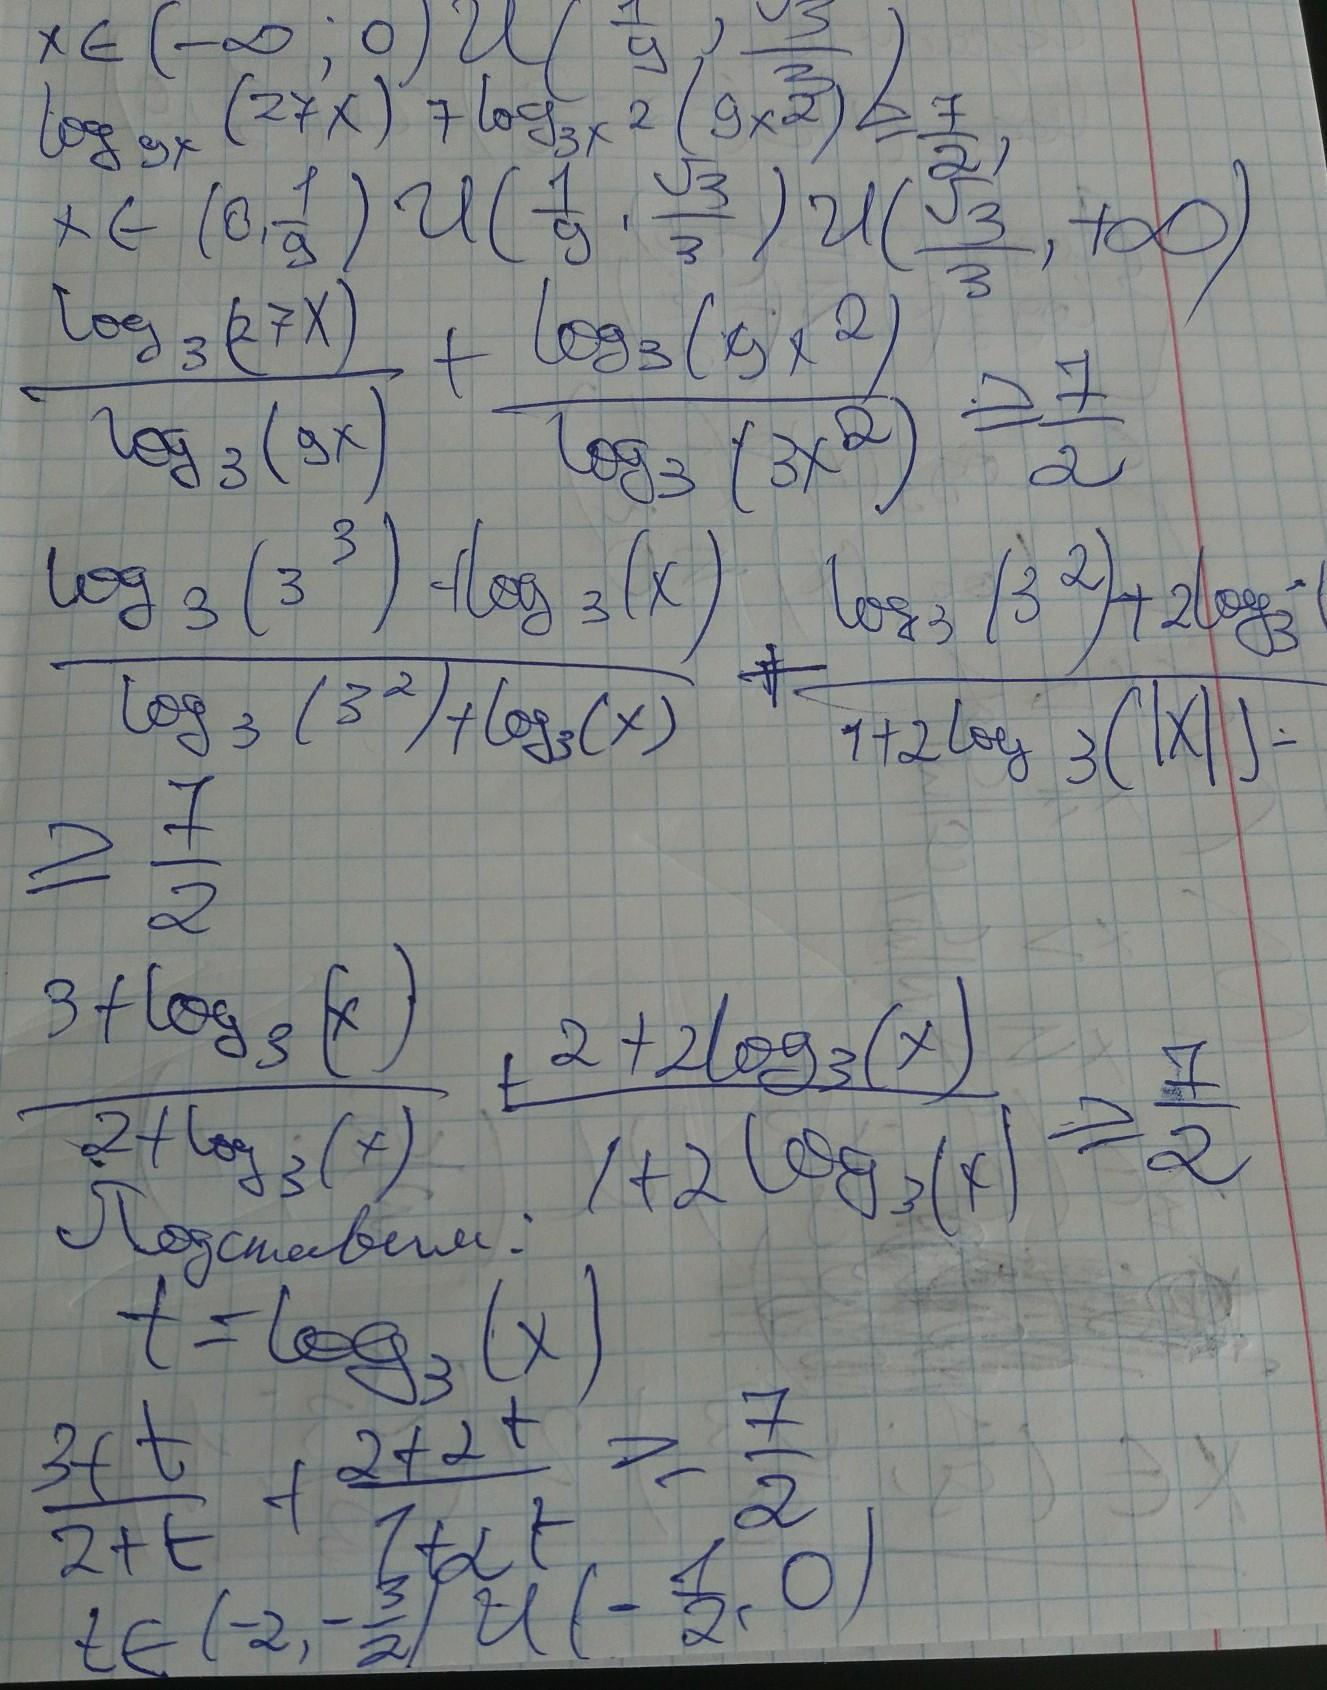 x∈(-∞; 0) U (1/9, √3/3)
log₉ₓ (27x) 7 log₃ₓ2 (9x2) ≥ 7/2,
x∈ (0, 1/9) U (1/9, √3/3) U (√3/3, +∞)
log₃(27x)/log₃(9x) + log₃(9x²)/log₃(3x²) ≥ 7/2
(log₃(3³)+log₃(x))/(log₃(3²)+log₃(x)) + (log₃(3²)+2log₃(/(1+2log₃(|x|)-
≥ 7/2
(3+log₃(x))/(2+log₃(x)) + (2+2log₃(x))/(1+2log₃(x)) ≥ 7/2
Подставим:
t=log₃(x)
(3+t)/(2+t) + (2+2t)/(1+2t) ≥ 7/2
t∈(-2, -3/2) U (-1/2, 0)